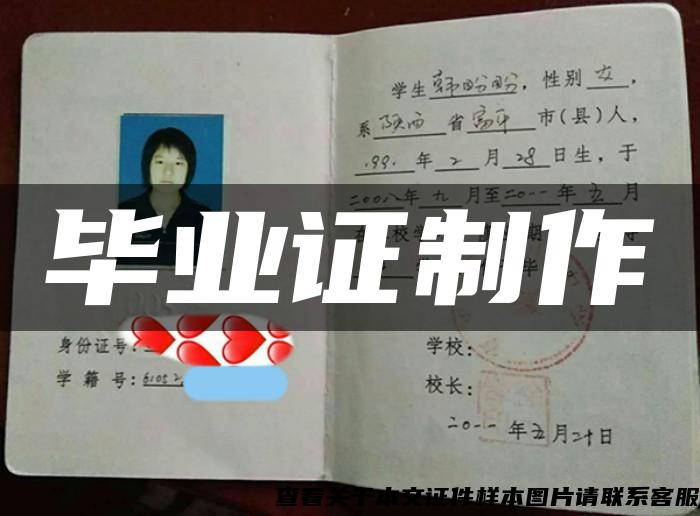 学生韩盼盼，性别女，
系陕西省富平市(县)人，
199.年2月28日生，于
二00八年九月至二0一一年五月
毕业证制作
身份证号：
学籍号：61052
学校：
校长：
二0一一年五月二十日
查看关于本文证件样本图片请联系客服